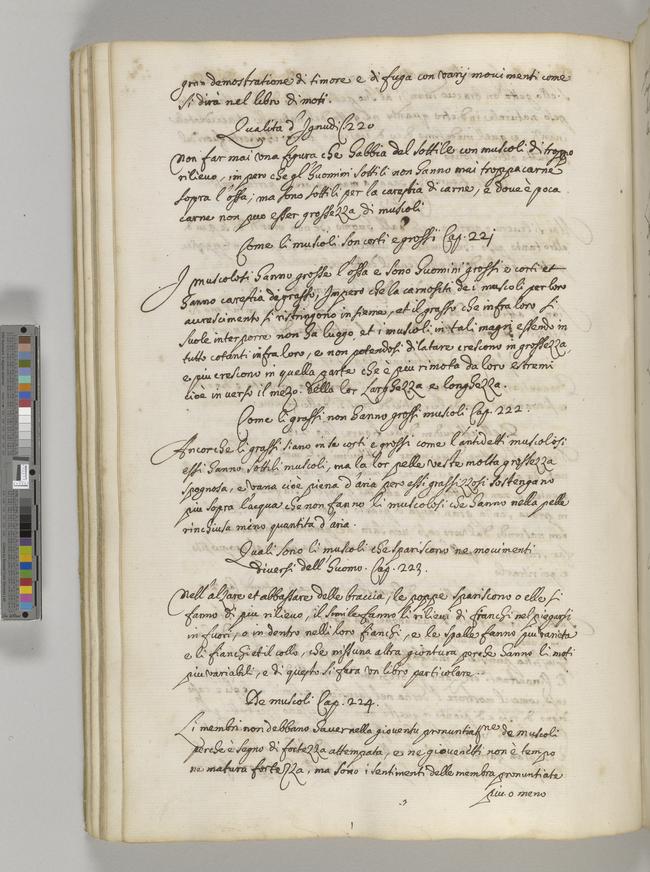 gran demostratione di timore e di fuga con varij movimenti come
si dirà nel libro di moti.
Qualita d'Ignudi C. 220
Non far mai una figura che habbia del sottile con muscoli di troppo
rilievo, in pero che gl'huomini sottili non hanno mai troppa carne
sopra l'ossa; ma sono sottili per la carestia di carne, e dove è poca
carne non puo esser grossezza di muscoli
Come li muscoli son corti e grossi Cap. 221
I muscolosi hanno grosse l'ossa e sono huomini grossi e corti et
hanno carestia de grasso; Impero che la carnosità de i muscoli per loro
accrescimento si ristringono insieme, et il grasso che infra loro si
suole interporre non ha luogo et i muscoli in tali magri essendo in
tutto cotanti infra loro, e non potendosi dilatare crescono in grossezza,
e piu crescono in quella parte che è piu rimota da loro estremi
cioè in versi il mezo. della lor larghezza e longhezza.
Come li grassi non hanno grossi muscoli Cap. 222.
Ancorche li grassi siano in se corti e grossi come l'antidetti muscolosi
essi hanno sottili muscoli, ma la lor pelle veste molta grossezza
spognosa, e vana cioè piena d'aria pero essi grassizzosi sostengano
piu sopra l'acqua che non fanno li muscolosi che hanno nella pelle
rinchiusa meno quantita d'aria.
Quali sono li muscoli che spariscono ne movimenti
diversi dell'Huomo. Cap. 223.
Nell'alzare et abbassare delle braccia, le poppe spariscono o elle si
fanno di piu rilievo, il simile fanno li rilievi di fianchi nel piegarsi
in fuori, o in dentro nelli loro fianchi, e le spalle fanno piu varietà
e li fianchi et il collo, che nissuna altra giontura perche hanno li moti
piu variabili, e di questo si fara un libro particolare.
De muscoli Cap. 224.
Li membri non debbano haver nella gioventu pronuntia^ne de muscoli
perche è segno di fortezza attempata, e ne giovenetti non è tempo
ne matura fortezza, ma sono i sentimenti delle membra pronuntiate
piu o meno